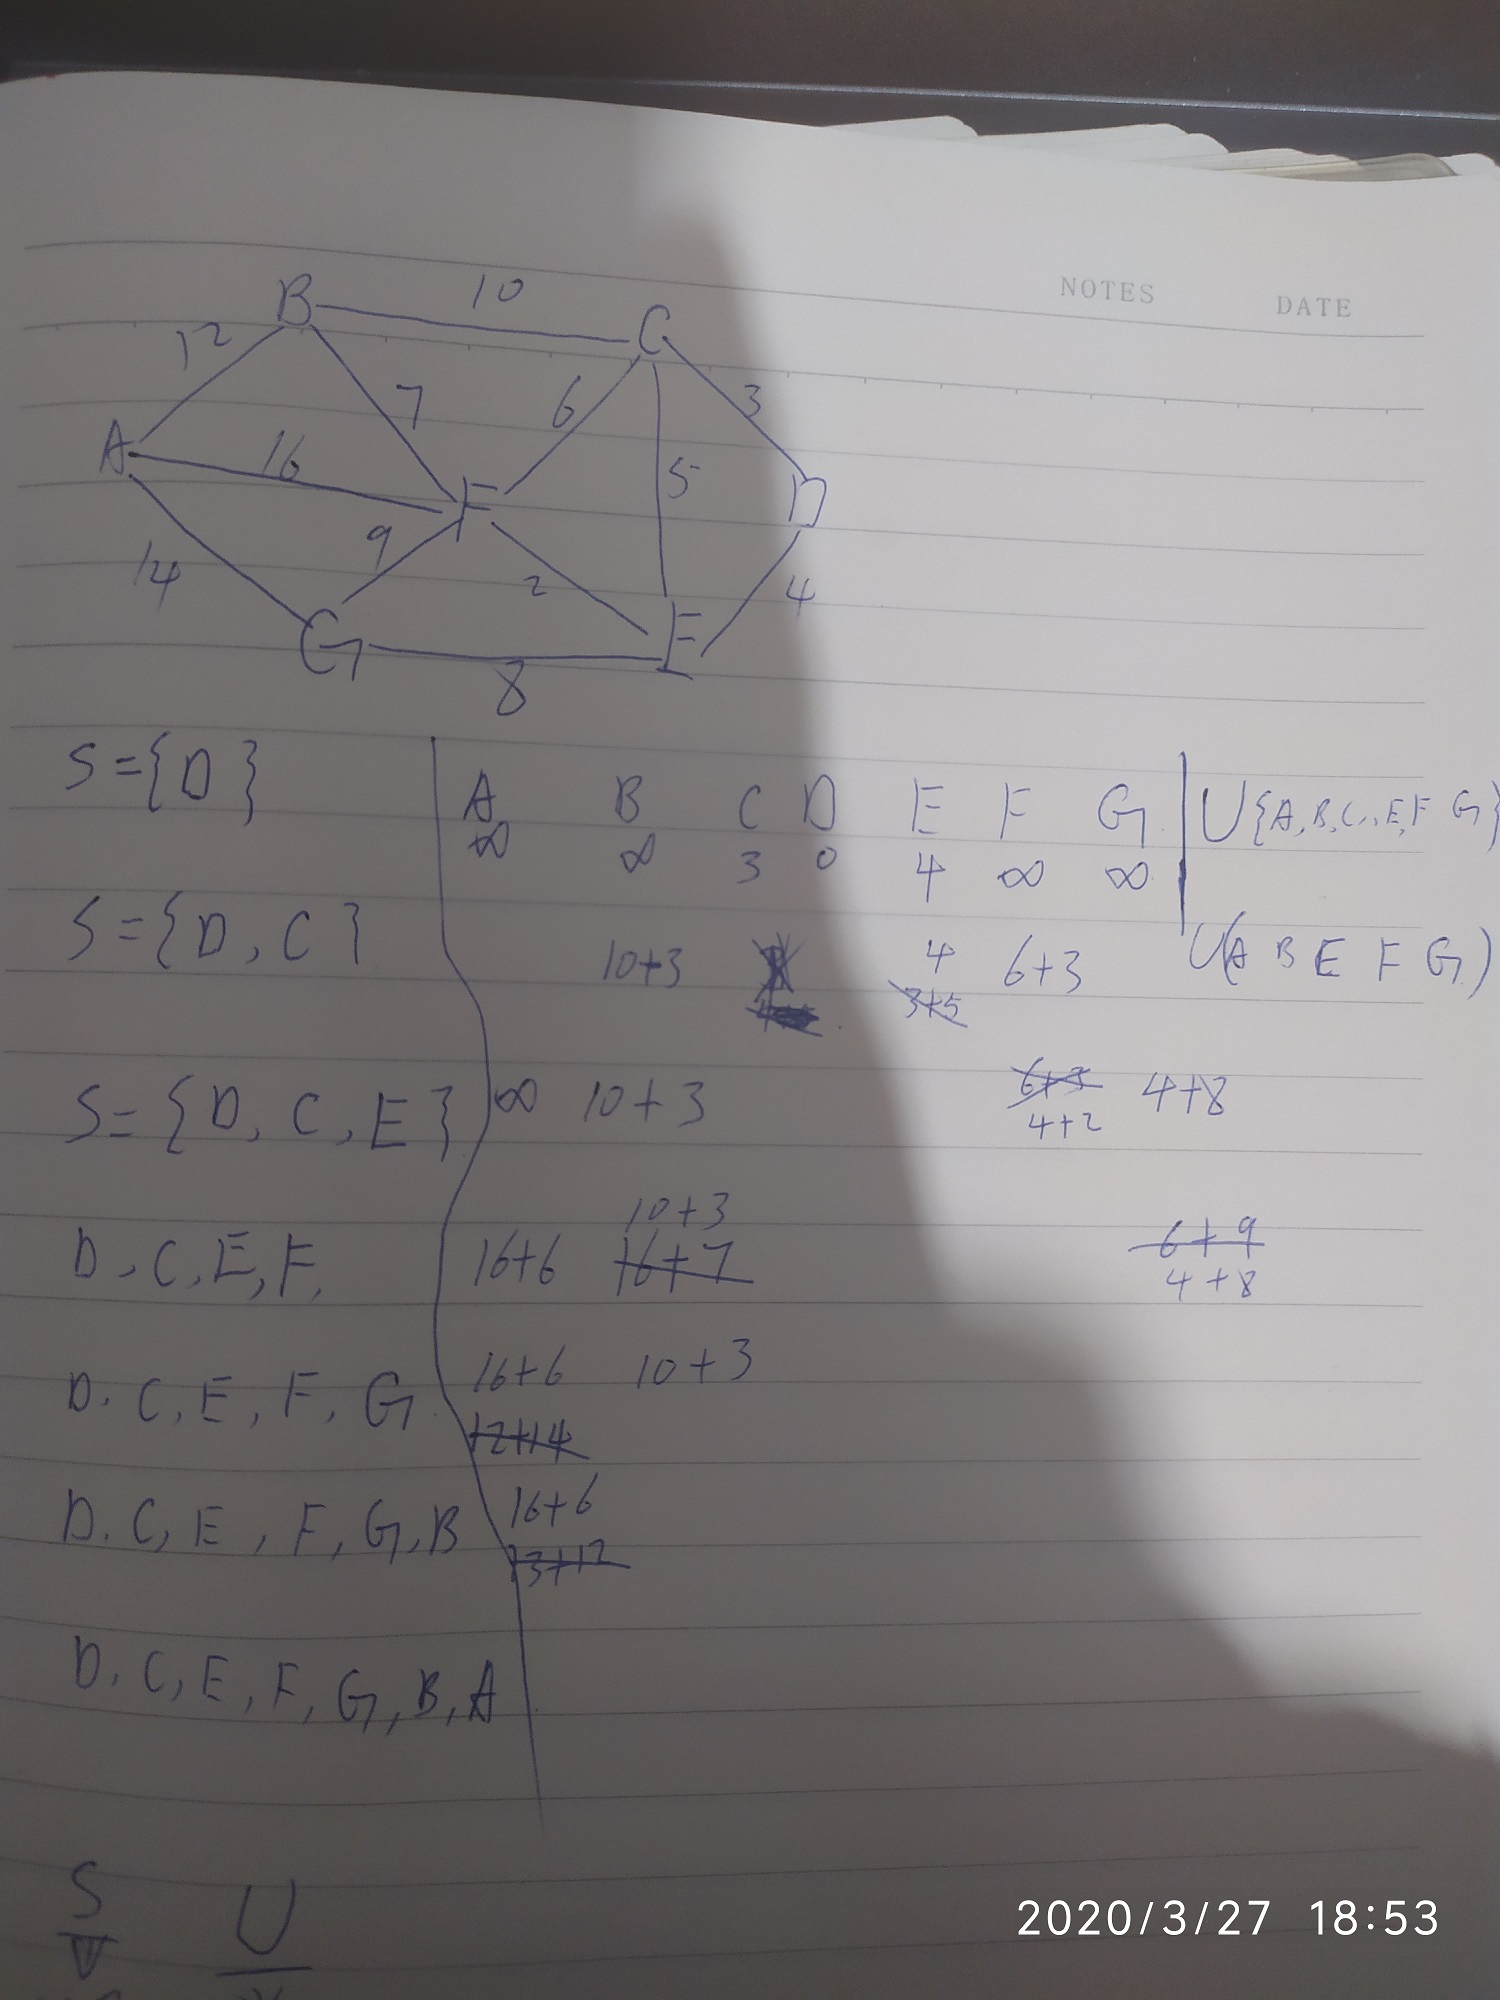 NOTES DATE
B 10 C
12 7 6 3
A 16 F 5 D
14 9 2 4
G 8 E
S={D} A B C D E F G U{A,B,C,,E,F G}
+∞ ∞ 3 0 4 ∞ ∞
S={D, C} 10+3 4 6+3 U(A B E F G)
3+5
S={D, C, E} ∞ 10+3 6+3 4+8
4+2
10+3
D, C, E, F, 16+6 16+7 6+9
4+8
D. C, E, F, G 16+6 10+3
12+14
D. C, E, F, G, B 16+6
13+12
D, C, E, F, G, B, A
S U
2020/3/27 18:53